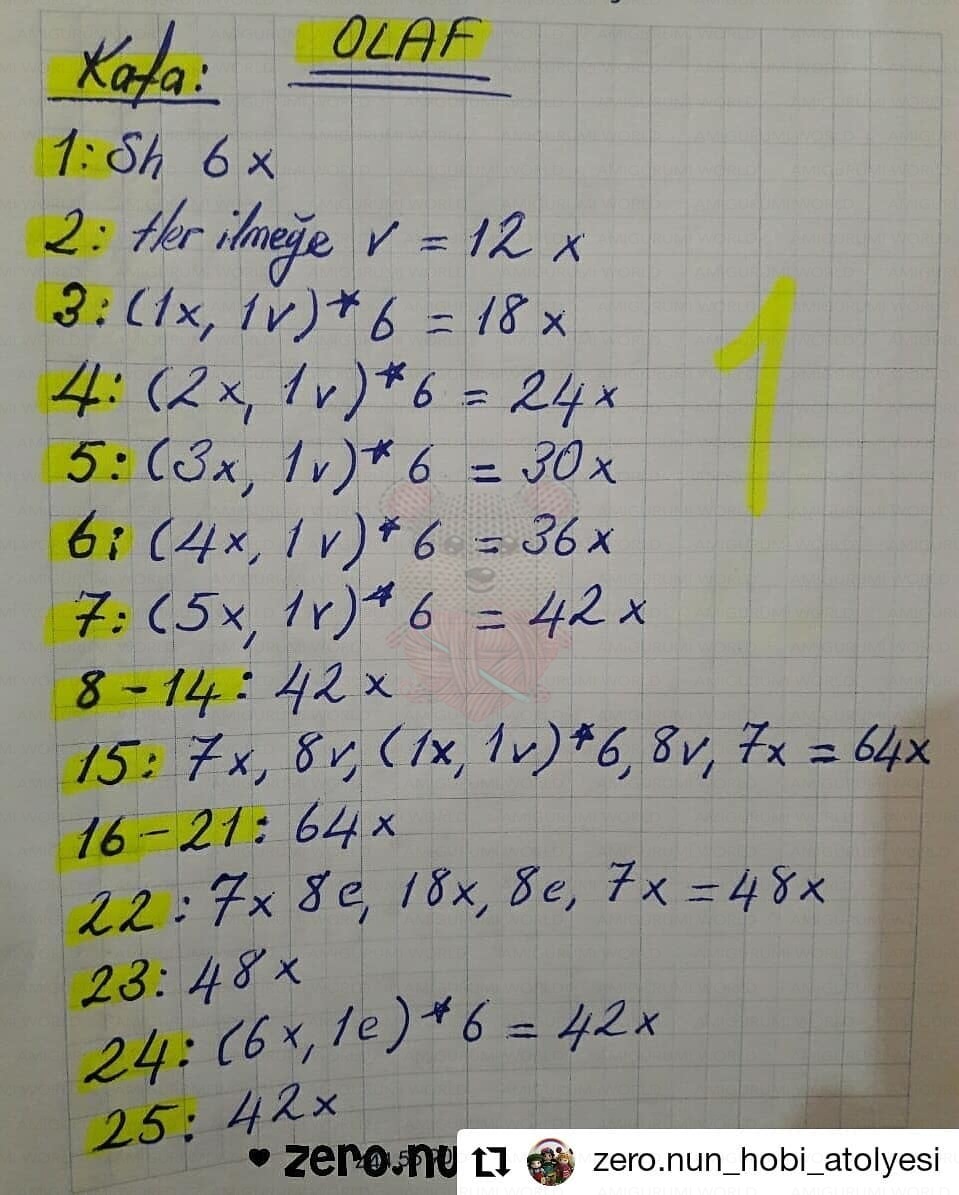 OLAF
Kafa:
1: Sh 6 x
2: Her ilmeğe v = 12 x
3: (1x, 1v)* 6 = 18 x
4: (2x, 1v)* 6 = 24 x
5: (3x, 1v)* 6 = 30 x
6: (4x, 1v)* 6 = 36 x
7: (5x, 1v)* 6 = 42 x
8 - 14: 42 x
15: 7x, 8v, (1x, 1v)*6, 8v, 7x = 64x
16 - 21: 64 x
22: 7x 8e, 18x, 8e, 7x = 48x
23: 48 x
24: (6x, 1e)* 6 = 42x
25: 42x
1
♥ zero.nu
zero.nun_hobi_atolyesi